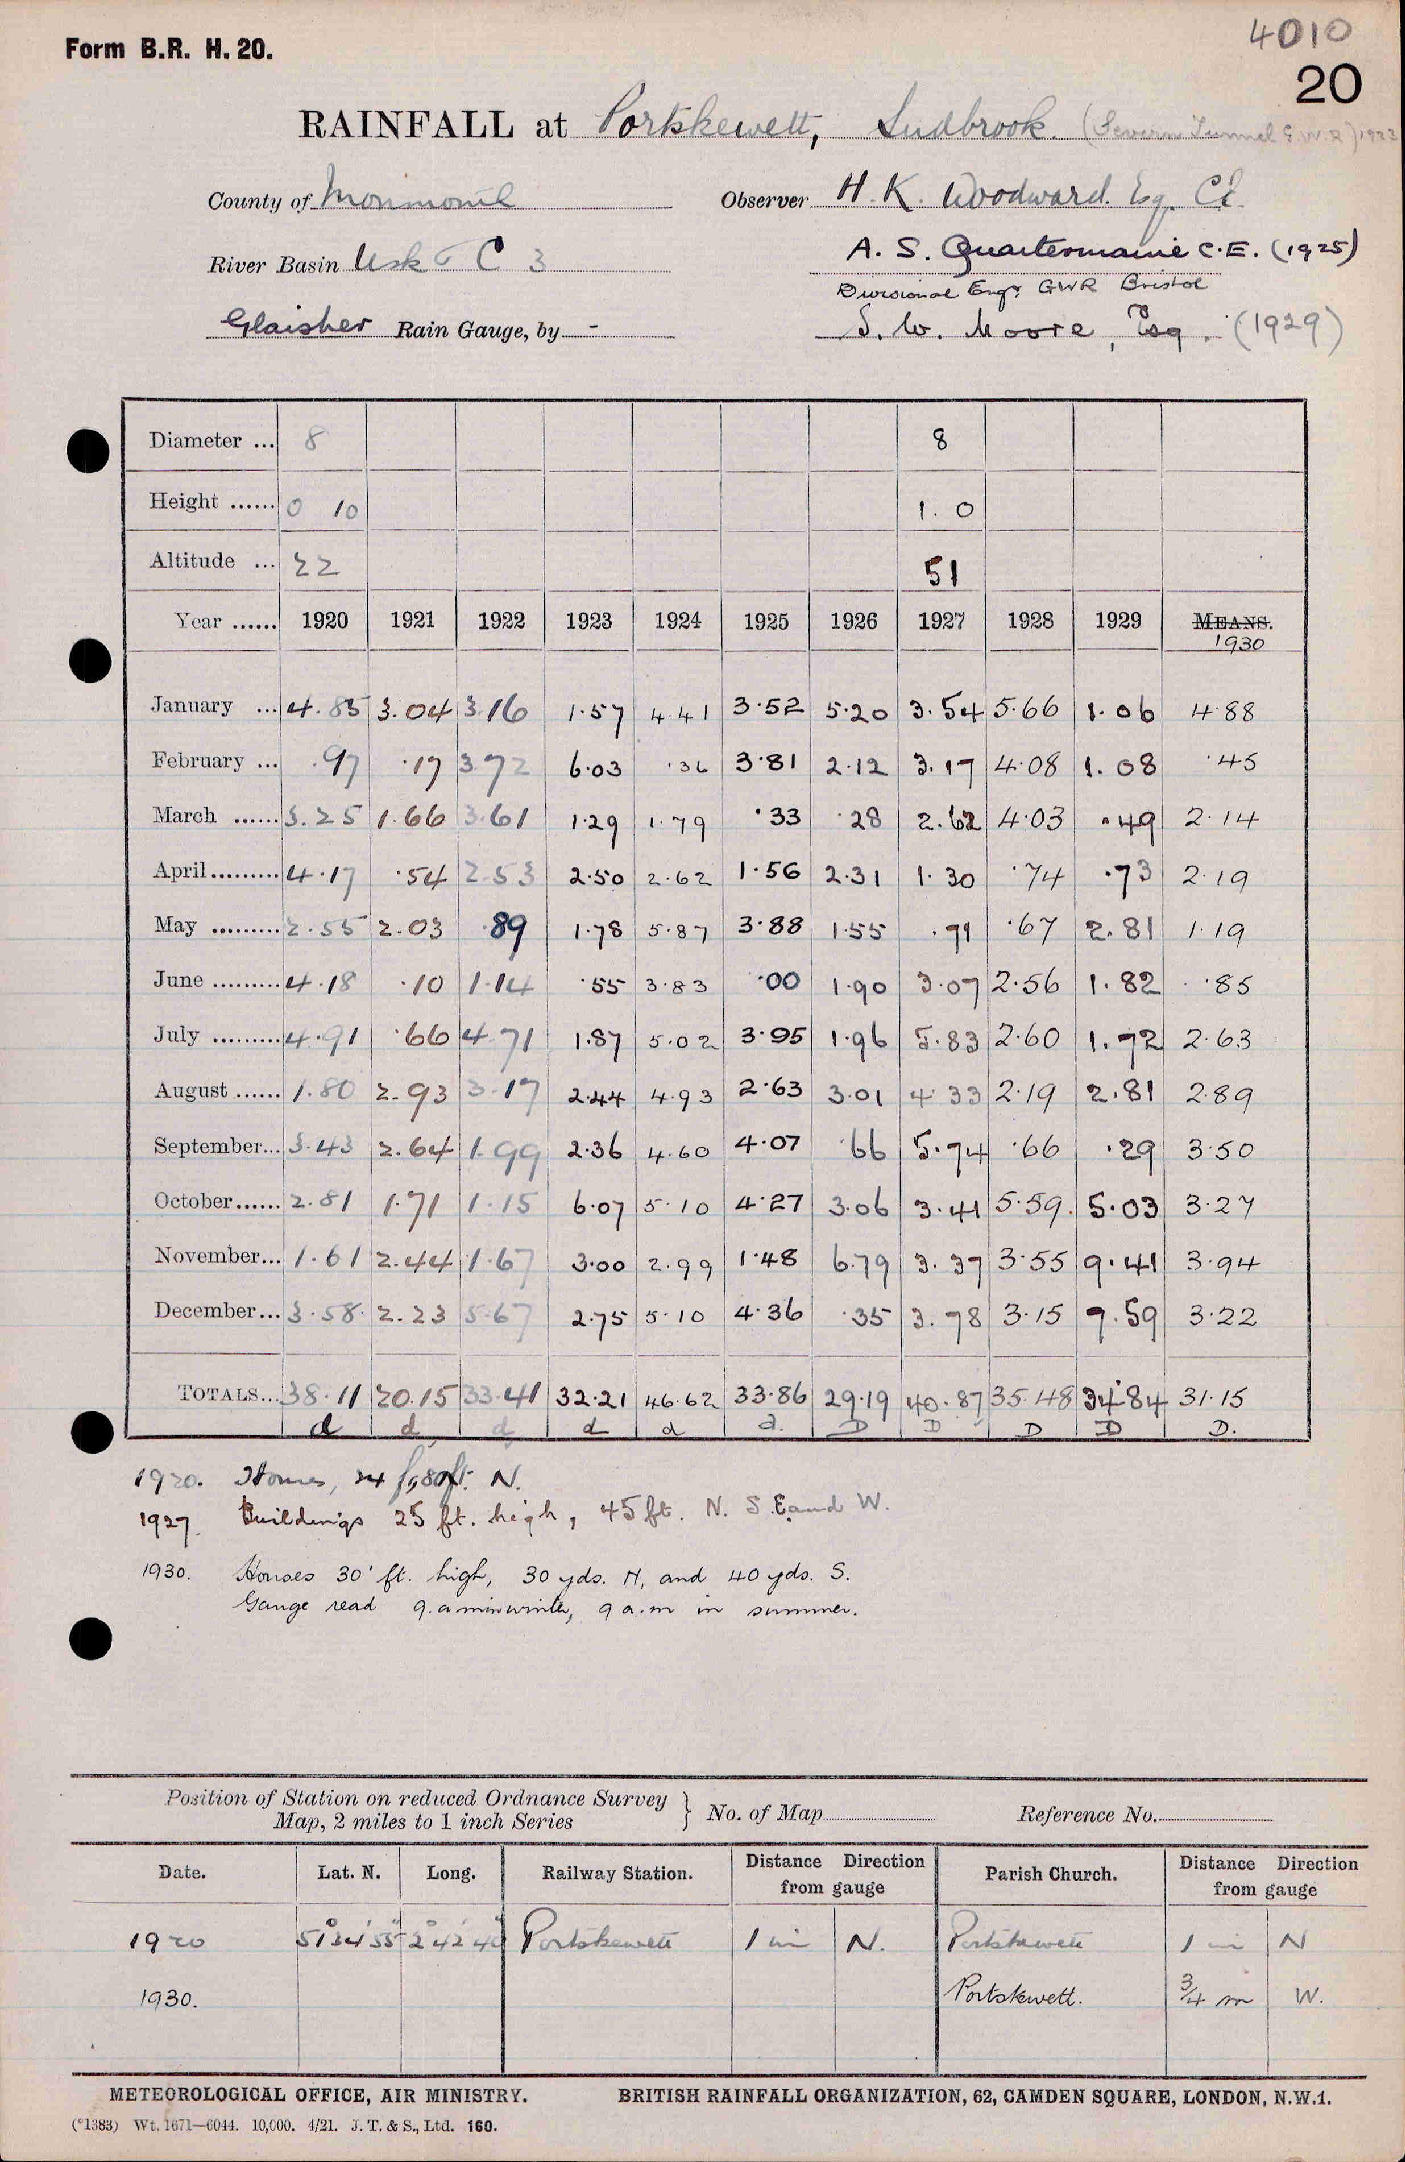 4010
Form B.R. H. 20.
20
RAINFALL at Portskewett, Sudbrook. (Severn Tunnel G.W.R) 1922
County of Monmouth Observer H. K. Woodward. Esq. CE.
River Basin Usk & C 3 A. S. Quartermaine C.E. (1925)
Divisional Engr. GWR Bristol
Glaisher Rain Gauge, by - S. W. Moore, Esq. (1929)
Diameter ... 8 8
Height ...... 0 10 1. 0
Altitude ... 22 51
Year ...... 1920 1921 1922 1923 1924 1925 1926 1927 1928 1929 MEANS.
1930
January ... 4.85 3.04 3.16 1.57 4.41 3.52 5.20 3.54 5.66 1.06 4.88
February ... .97 .17 3.72 6.03 .36 3.81 2.12 3.17 4.08 1.08 .45
March ...... 3.25 1.66 3.61 1.29 1.79 .33 .28 2.62 4.03 .49 2.14
April......... 4.17 .54 2.53 2.50 2.62 1.56 2.31 1.30 .74 .73 2.19
May ......... 2.55 2.03 .89 1.78 5.87 3.88 1.55 .91 .67 2.81 1.19
June ......... 4.18 .10 1.14 .55 3.83 .00 1.90 3.07 2.56 1.82 .85
July ......... 4.91 .66 4.71 1.87 5.02 3.95 1.96 5.83 2.60 1.72 2.63
August ...... 1.80 2.93 3.17 2.44 4.93 2.63 3.01 4.33 2.19 2.81 2.89
September... 3.43 2.64 1.99 2.36 4.60 4.07 .66 5.74 .66 .29 3.50
October...... 2.81 1.71 1.15 6.07 5.10 4.27 3.06 3.41 5.59 5.03 3.27
November... 1.61 2.44 1.67 3.00 2.99 1.48 6.79 3.37 3.55 9.41 3.94
December... 3.58 2.23 5.67 2.75 5.10 4.36 .35 3.78 3.15 7.59 3.22
TOTALS... 38.11 20.15 33.41 32.21 46.62 33.86 29.19 40.87 35.48 34.84 31.15
d d d d d d. D D D D D.
1920. House, 24 ft, 80 ft. N.
1927. Buildings 25 ft. high, 45 ft. N. S. E and W.
1930. Houses 30 ft. high, 30 yds. N, and 40 yds. S.
Gauge read 9. a.m in winter, 9 a.m in summer.
Position of Station on reduced Ordnance Survey
Map, 2 miles to 1 inch Series } No. of Map Reference No.
Date. Lat. N. Long. Railway Station. Distance Direction from gauge Parish Church. Distance Direction from gauge
1920 51° 34' 55" 2° 42' 40" Portskewett 1 mi N. Portskewett 1 mi N
1930. Portskewett. 3/4 m W.
METEOROLOGICAL OFFICE, AIR MINISTRY. BRITISH RAINFALL ORGANIZATION, 62, CAMDEN SQUARE, LONDON, N.W.1.
(*1383) Wt. 1671—6044. 10,000. 4/21. J. T. & S., Ltd. 160.